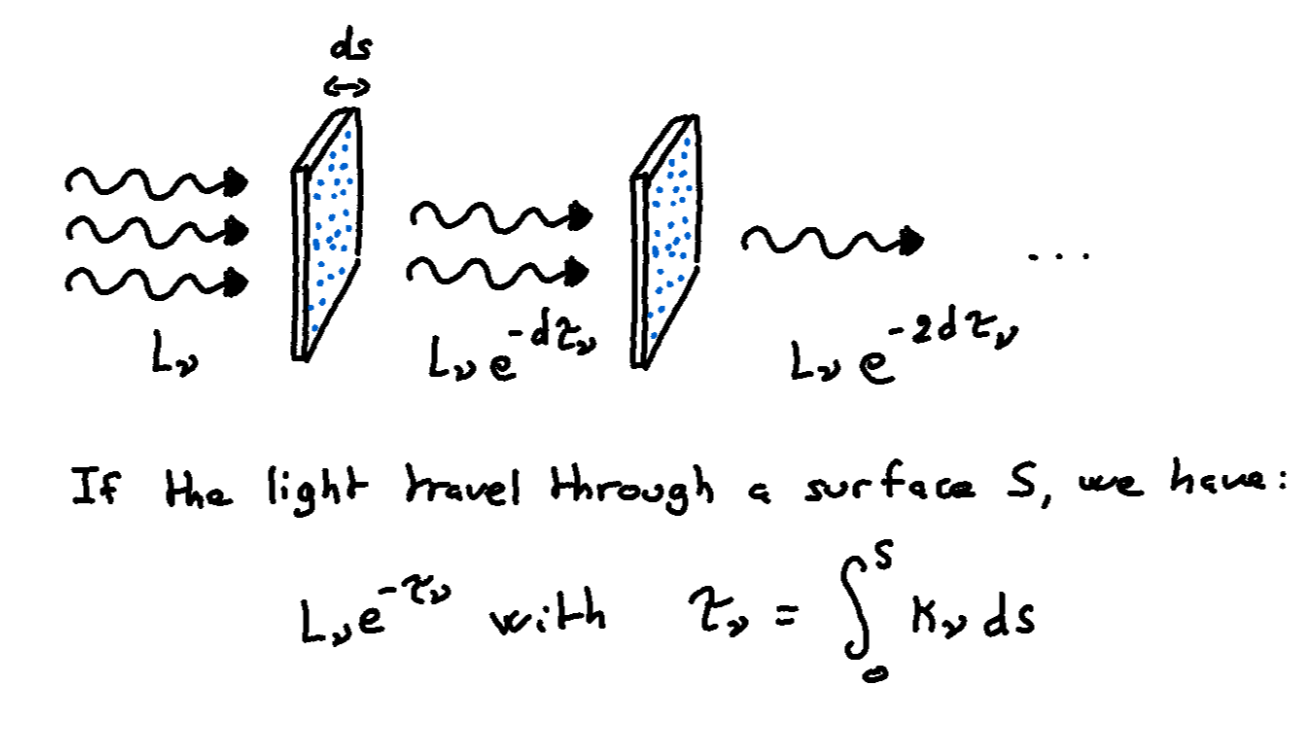 ds
L_ν L_ν e^{-dτ_ν} L_ν e^{-2dτ_ν} ...
If the light travel through a surface S, we have:
L_ν e^{-τ_ν} with τ_ν = ∫_0^S K_ν ds